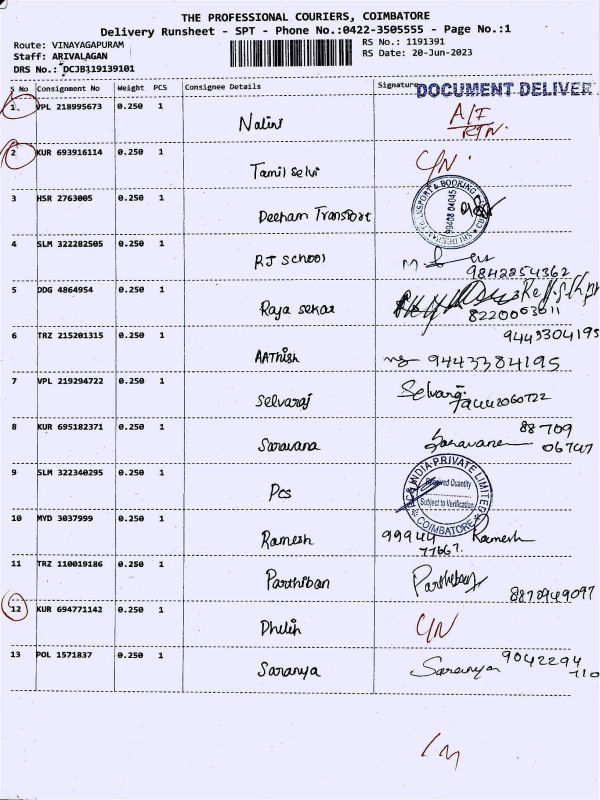 THE PROFESSIONAL COURIERS, COIMBATORE
Delivery Runsheet - SPT - Phone No.:0422-3505555 - Page No.:1
Route: VINAYAGAPURAM
RS No.: 1191391
Staff: ARIVALAGAN
RS Date: 20-Jun-2023
DRS No.: DCJB119139101
S No Consignment No Weight PCS Consignee Details Signature
DOCUMENT DELIVER
1 VPL 218995673 0.250 1 Nalini A/F
RTN.
2 KUR 693916114 0.250 1 Tamil selvi C/N.
3 HSR 2763005 0.250 1 Deeham Transport
TRANSPORT & BOOKING
99408 04045
4 SLM 322282505 0.250 1 RJ school
9842254362
5 DDG 4864954 0.250 1 Raja sekar
8220003011
9443304195
6 TRZ 215201315 0.250 1 AAThish 9443384195
7 VPL 219294722 0.250 1 Selvaraj Selvaraj
8 KUR 695182371 0.250 1 Saravana Saravana 88709
06747
9 SLM 322340295 0.250 1 Pcs
INDIA PRIVATE LIMITED
Received Quantity
Subject to Verification
COIMBATORE
10 MYD 3037999 0.250 1 Ramesh 99944 Ramesh
77667.
11 TRZ 110019186 0.250 1 Parthiban Parthiban
8870949097
12 KUR 694771142 0.250 1 Dhilih C/N
13 POL 1571837 0.250 1 Saranya Saranya 9042294
710